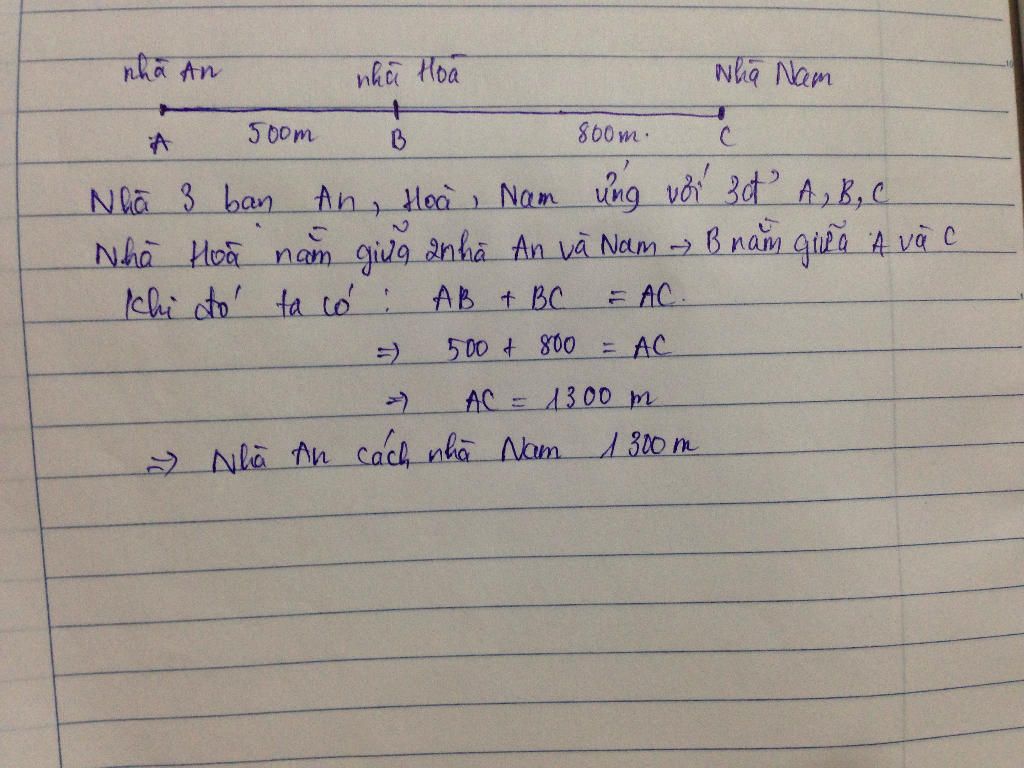 nhà An nhà Hoà Nhà Nam
A 500m B 800m. C
Nhà 3 bạn An, Hoà, Nam ứng với 3đ' A, B, C
Nhà Hoà nằm giữa 2nhà An và Nam → B nằm giữa A và C
Khi đó ta có : AB + BC = AC.
=> 500 + 800 = AC
=> AC = 1300 m
=> Nhà An cách nhà Nam 1300m